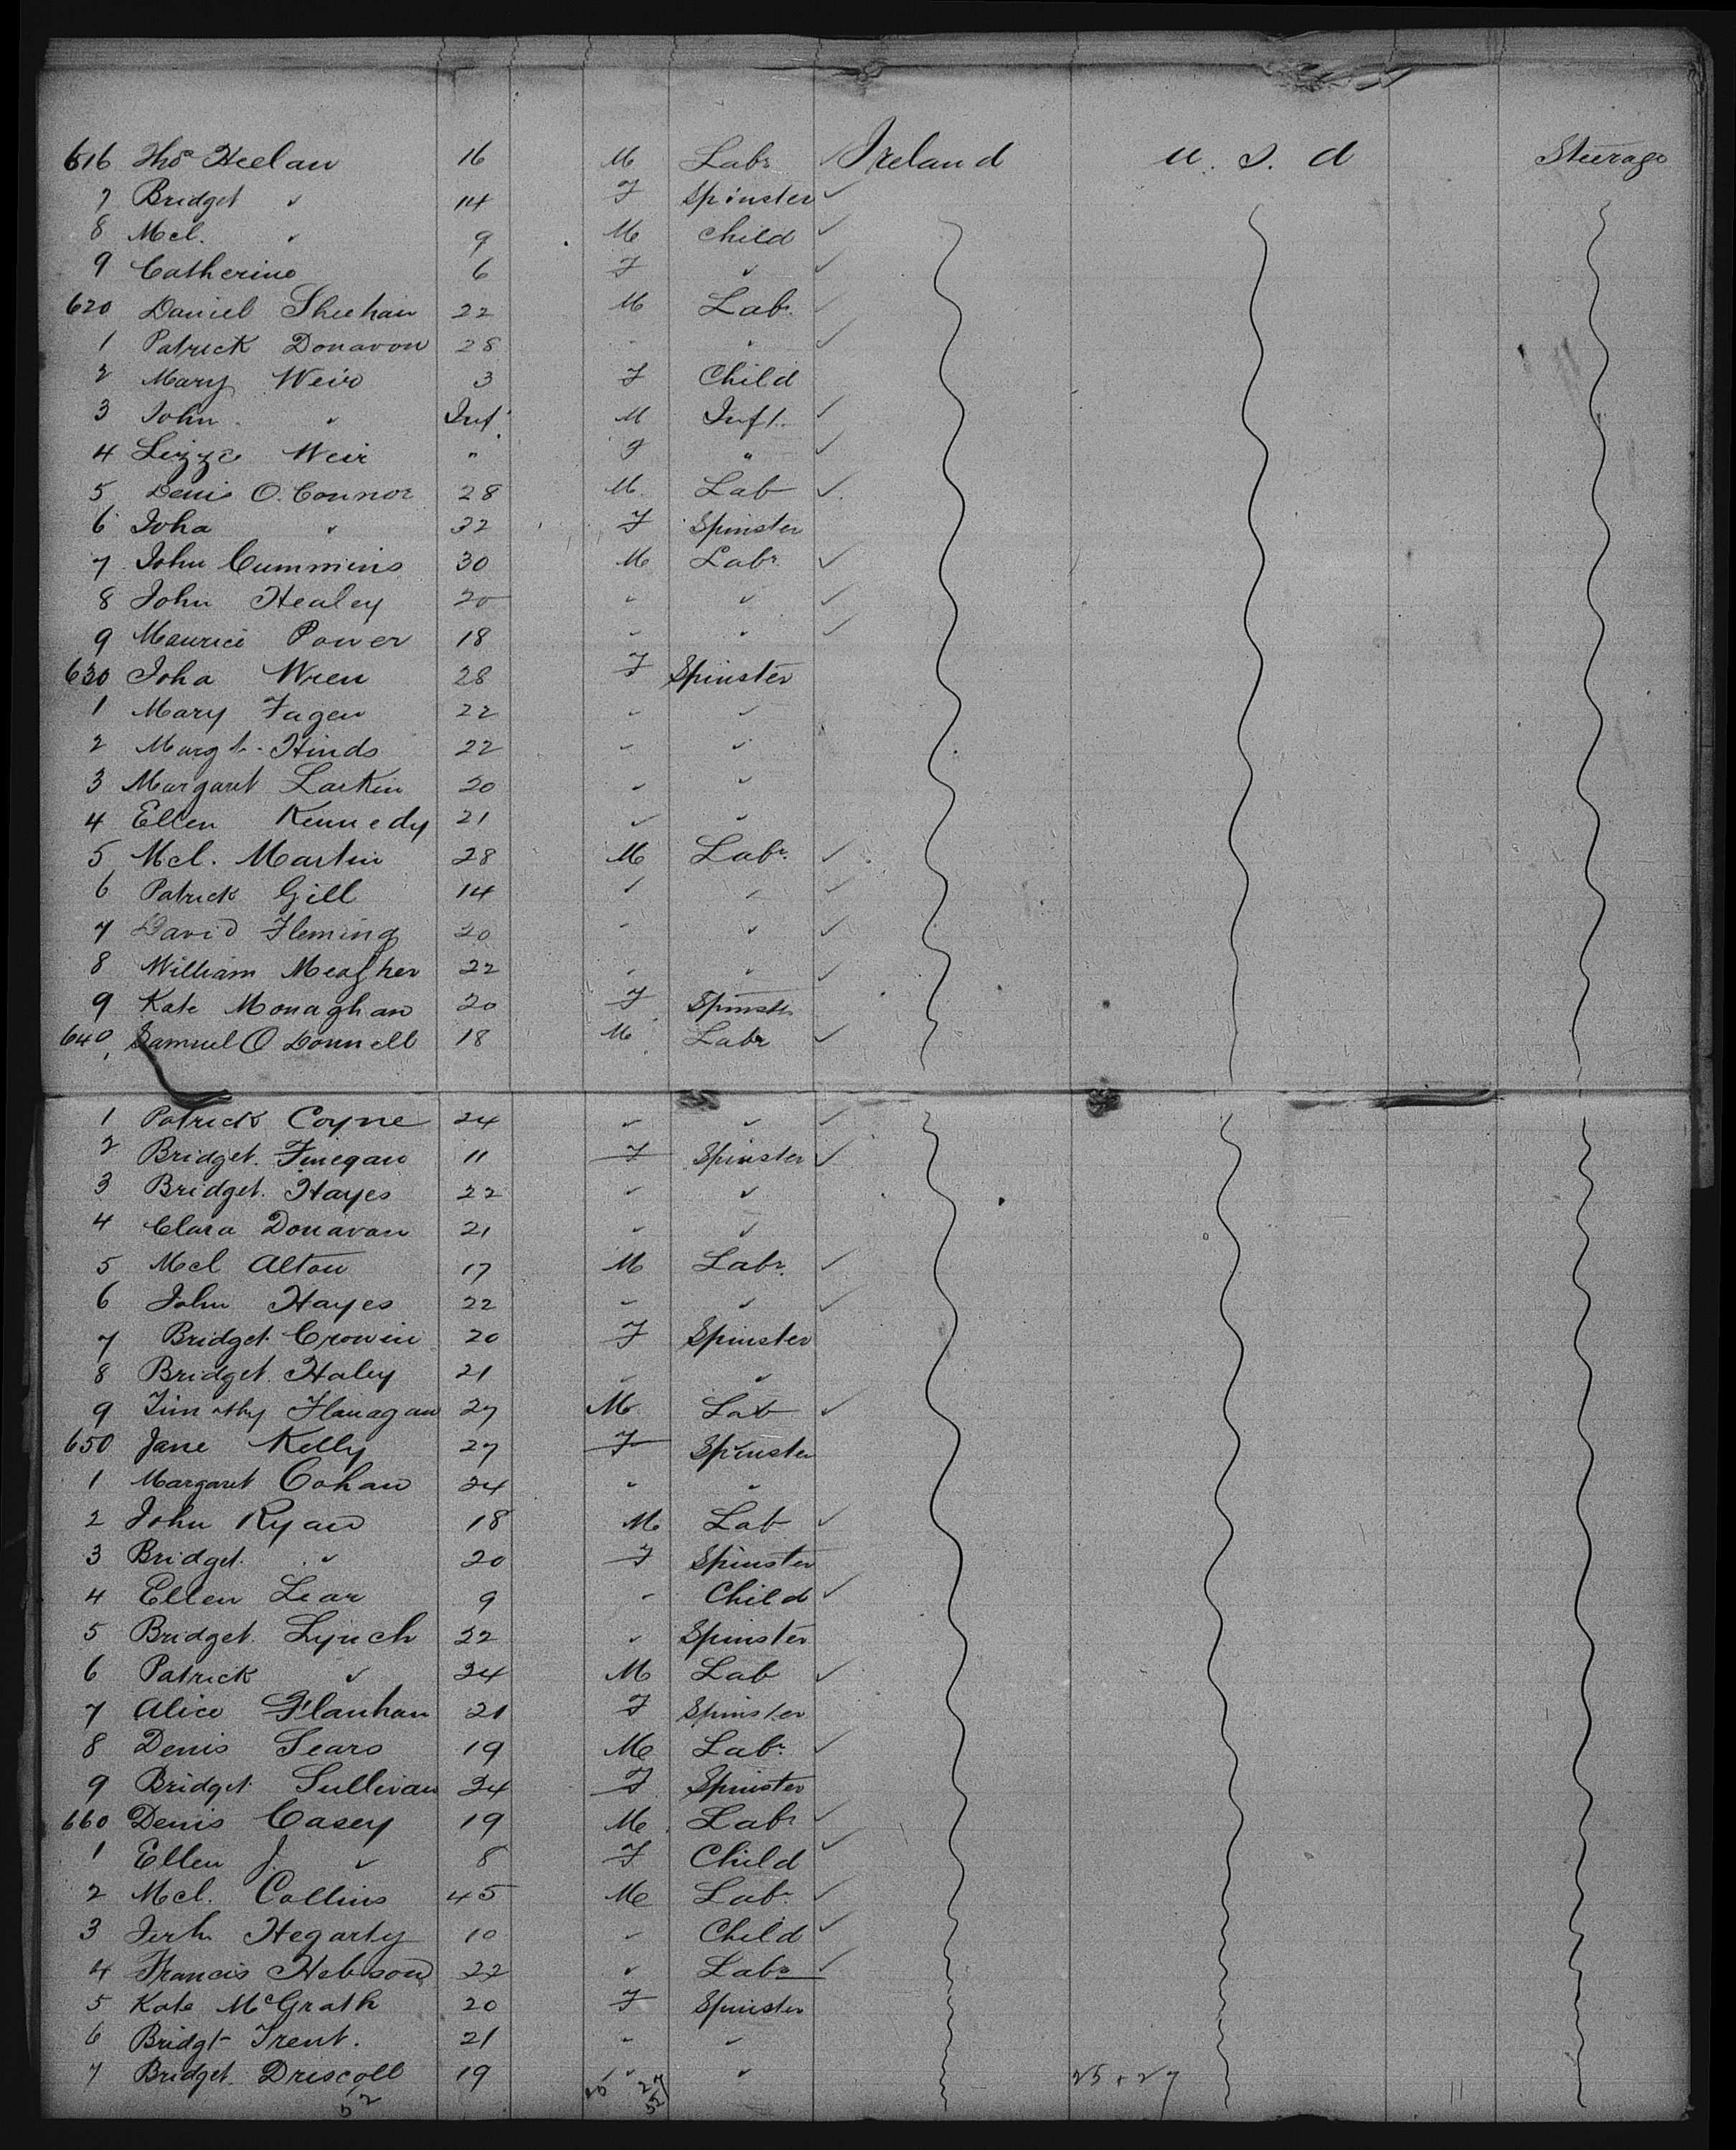 616 Thos Heelan 16 M Labr Ireland U. S. A Steerage
7 Bridget " 14 F Spinster
8 Mcl. " 9 M Child
9 Catherine 6 F "
620 Daniel Sheehan 22 M Labr
1 Patrick Donavon 28 " "
2 Mary Weir 3 F Child
3 John " Inf. M Inft.
4 Lizze Weir " F "
5 Denis O. Connor 28 M. Lab
6 Joha " 32 F Spinster
7 John Cummins 30 M Labr
8 John Healey 20 " "
9 Maurice Power 18 " "
630 Joha Wren 28 F Spinster
1 Mary Fagen 22 " "
2 Margt. Hinds 22 " "
3 Margaret Larkin 20 " "
4 Ellen Kennedy 21 " "
5 Mcl. Martin 28 M Labr.
6 Patrick Gill 14 " "
7 David Fleming 20 " "
8 William Meagher 22 " "
9 Kate Monaghan 20 F Spinstr
640 Samuel O Donnell 18 M Labr
1 Patrick Coyne 24 " "
2 Bridget. Finegan 11 F Spinster
3 Bridget. Hayes 22 " "
4 Clara Donavan 21 " "
5 Mcl Alton 17 M Labr.
6 John Hayes 22 " "
7 Bridget. Crowin 20 F Spinster
8 Bridget. Haley 21 " "
9 Timothy Flanagan 27 M Lab
650 Jane Kelly 27 F Spinster
1 Margaret Cohan 24 " "
2 John Ryan 18 M Lab
3 Bridget. " 20 F Spinster
4 Ellen Lear 9 " Child
5 Bridget. Lynch 22 " Spinster
6 Patrick " 24 M Lab
7 Alice Flanhan 21 F Spinster
8 Denis Sears 19 M Labr.
9 Bridget. Sullivan 24 F Spinster
660 Denis Casey 19 M Labr
1 Ellen J. " 8 F Child
2 Mcl. Collins 45 M Labr.
3 Jerh. Hegarty 10 " Child
4 Francis Hebson 22 " Labr
5 Kate McGrath 20 F Spinster
6 Bridgt Trent. 21 " "
7 Bridget. Driscoll 19 " "
52 25 27 52 25 + 27 11